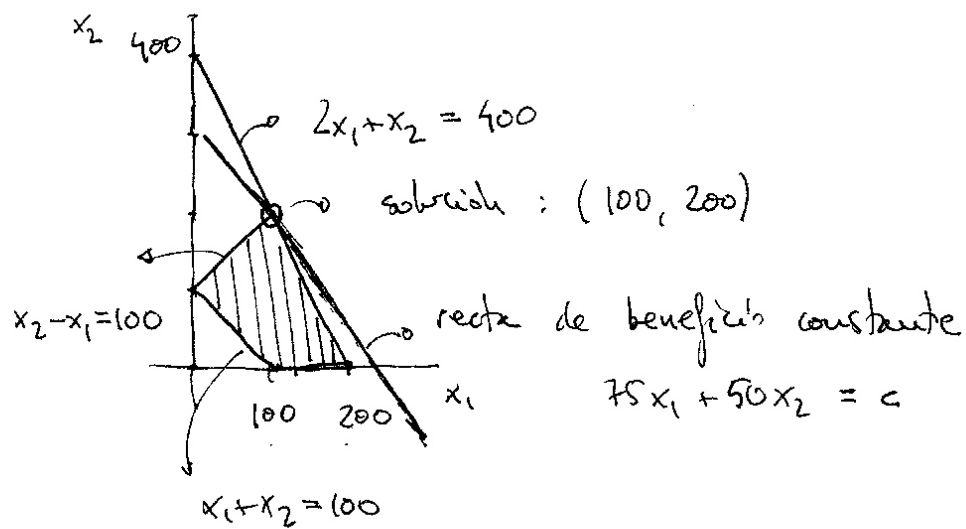 x₂
400
2x₁+x₂ = 400
solución : (100, 200)
x₂-x₁=100
recta de beneficio constante
x₁
75x₁ + 50x₂ = c
100
200
x₁+x₂=100